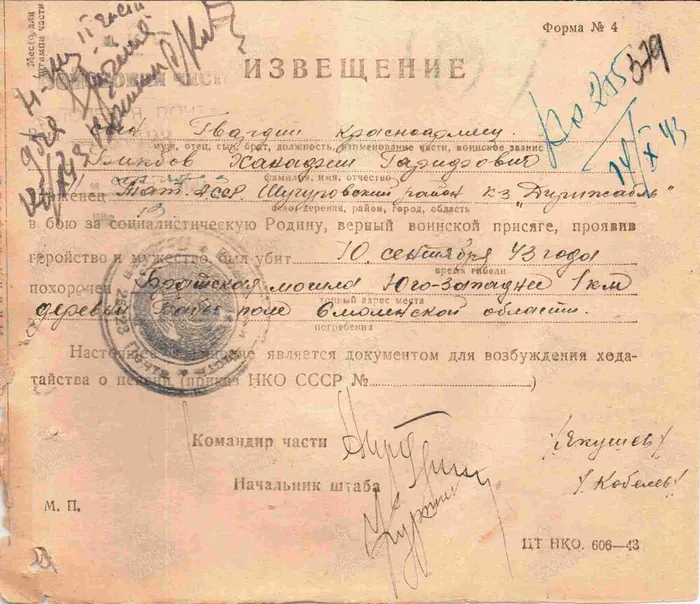 Место для
штампа части
Форма № 4
ИЗВЕЩЕНИЕ
№ 205 379
14/X 43
Гвардии красноармеец
муж, отец, сын, брат, должность, наименование части, воинское звание
Ханафи Гарифович
фамилия, имя, отчество
уроженец Тат. АССР. Шугуровский район к-з „Дирижабль"
село, деревня, район, город, область
в бою за социалистическую Родину, верный воинской присяге, проявив
геройство и мужество, был убит 10 сентября 43 года
время гибели
похоронен Братская могила Юго-Западнее 1 км
точный адрес места
деревни Бабье поле Смоленской области.
погребения
Настоящее извещение является документом для возбуждения хода-
тайства о пенсии (приказ НКО СССР №)
Командир части /Якушев/
Начальник штаба /Кобелев/
М. П.
ЦТ НКО. 606—43